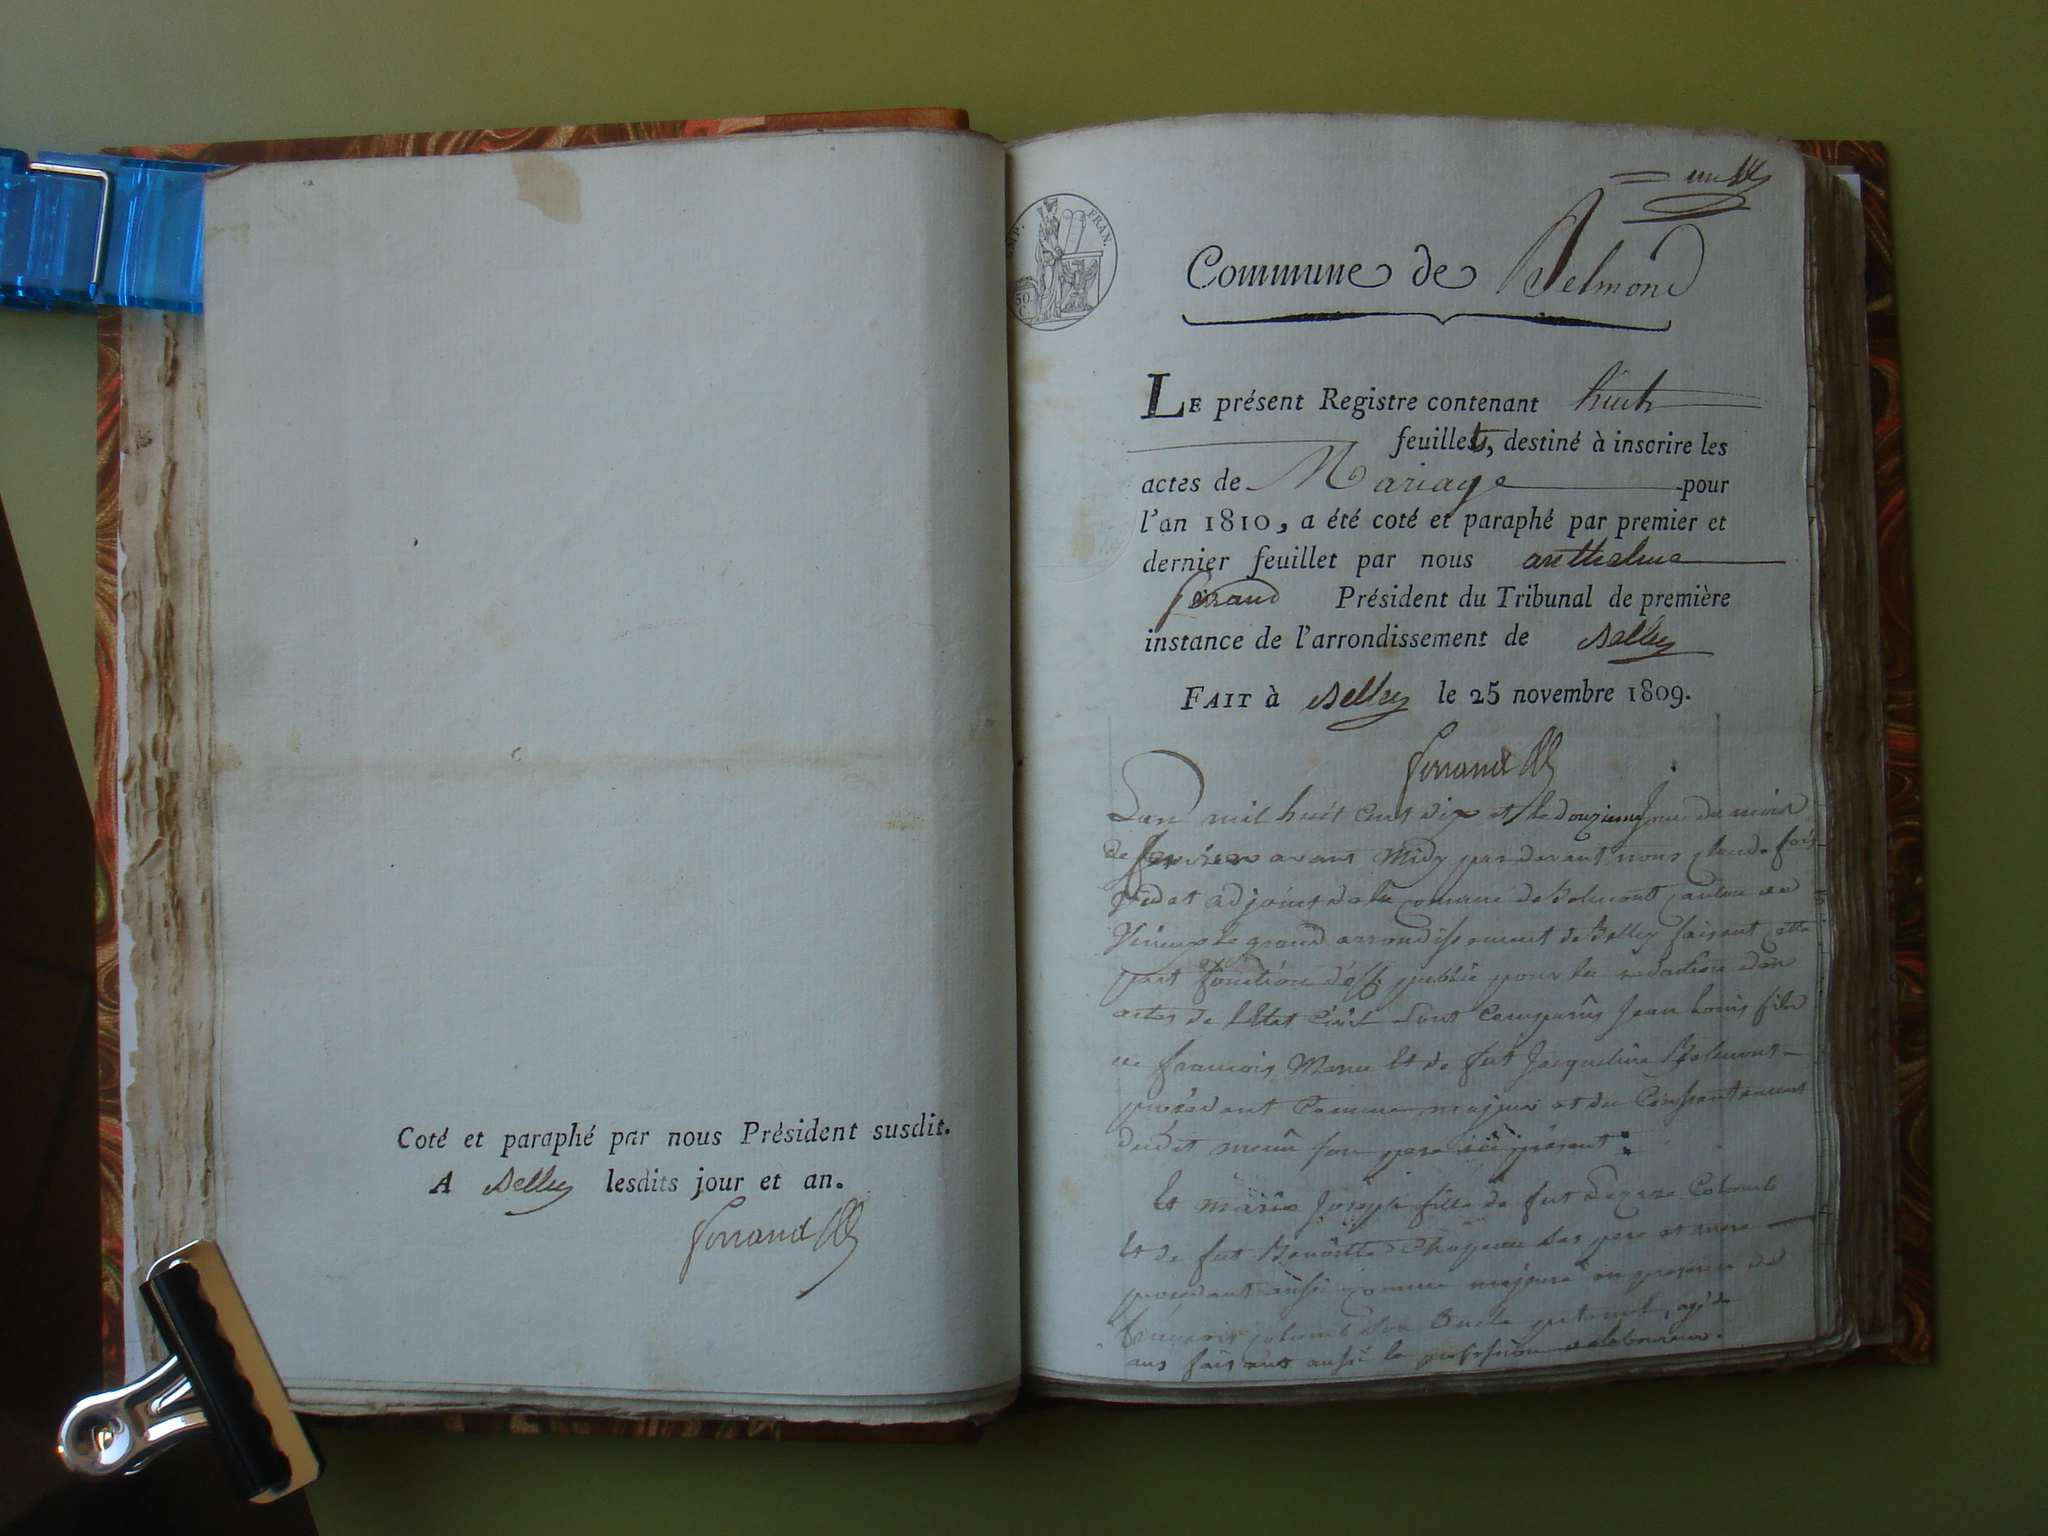 Coté et paraphé par nous Président susdit.
A Belley lesdits jour et an.
Ferrand
IMP. FRAN.
50
C.
Commune de Belmond
LE présent Registre contenant huit
feuillets, destiné à inscrire les
actes de Mariage pour
l'an 1810, a été coté et paraphé par premier et
dernier feuillet par nous anthelme
ferrand Président du Tribunal de première
instance de l'arrondissement de Belley
FAIT à Belley le 25 novembre 1809.
Ferrand
L'an mil huit cent dix et le douzieme jour du mois
de avant Midy par devant nous Claude
adjoint de la commune de Belmont canton de
Virieux le grand arrondissement de Belley faisant cette
part fonction d'off. public pour la redaction des
actes de l'Etat Civil Sont Comparûs Jean Louis fils
de francois et de fut Jacqueline Belmont
procedant Comme majeur et du Consentement
dudit son pere ici présent
Et marie Joseph fille de fut Lazare Colomb
Et de fut Benoitte ses pere et mere
procedant aussi comme majeure en presence de
francois colomb son Oncle paternel, agé de
ans faisant aussi la profession de laboureur.